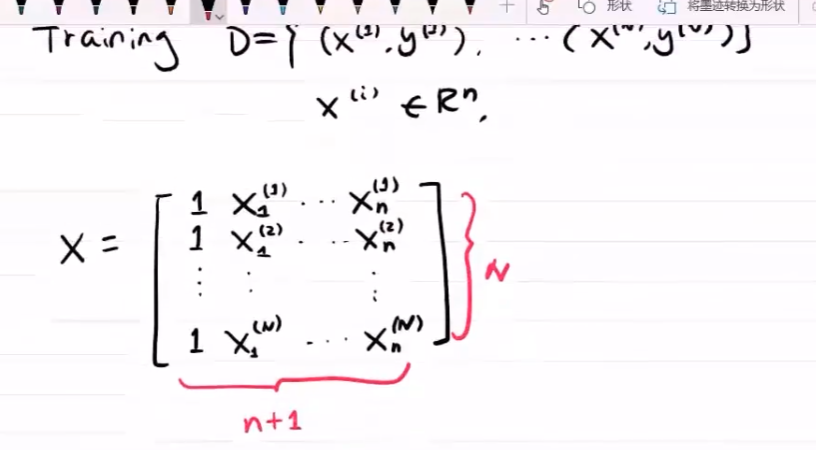 形状 将墨迹转换为形状
Training D={ (x^(1), y^(1)), ... (x^(N), y^(N))}
x^(i) ∈ R^n,
1 x_1^(1) ... x_n^(1)
1 x_1^(2) . ... x_n^(2)
X = [ ] N
⋮ ⋮ ⋮
1 x_1^(N) ... x_n^(N)
n+1